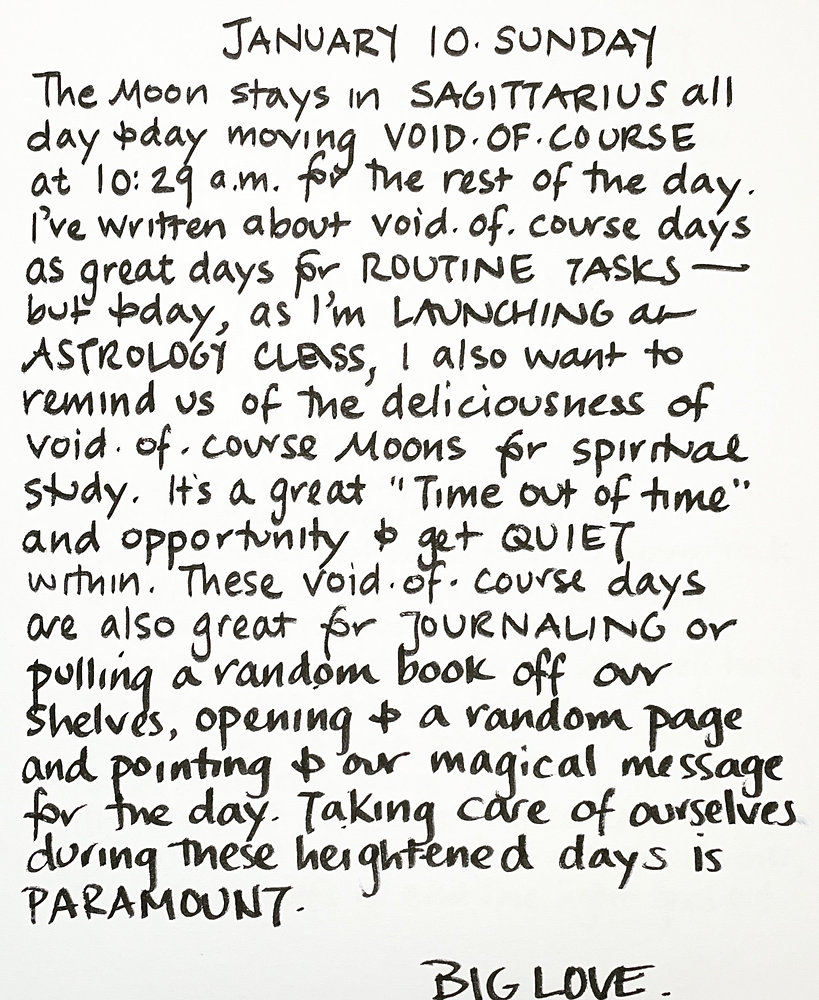 JANUARY 10. SUNDAY
The Moon stays in SAGITTARIUS all
day today moving VOID.OF.COURSE
at 10:29 a.m. for the rest of the day.
I've written about void.of.course days
as great days for ROUTINE TASKS—
but today, as I'm LAUNCHING an
ASTROLOGY CLASS, I also want to
remind us of the deliciousness of
void.of.course Moons for spiritual
study. It's a great "Time out of time"
and opportunity to get QUIET
within. These void.of.course days
are also great for JOURNALING or
pulling a random book off our
shelves, opening to a random page
and pointing to our magical message
for the day. Taking care of ourselves
during these heightened days is
PARAMOUNT.
BIG LOVE.